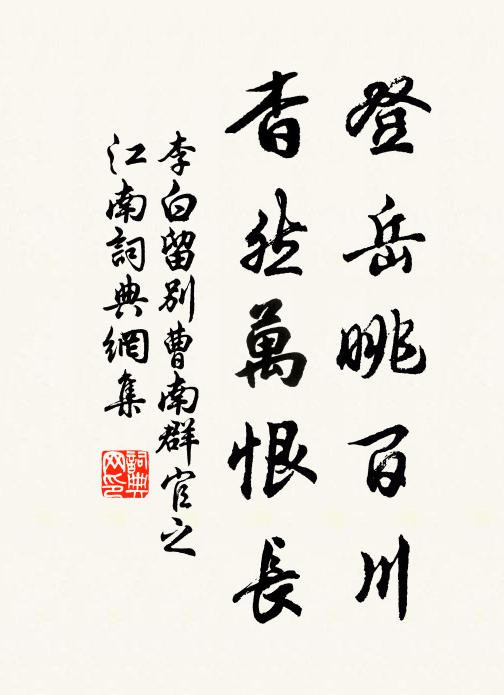 登岳眺百川
杳然萬恨長
李白留別曹南群官之
江南詞典網集
詞典
网印